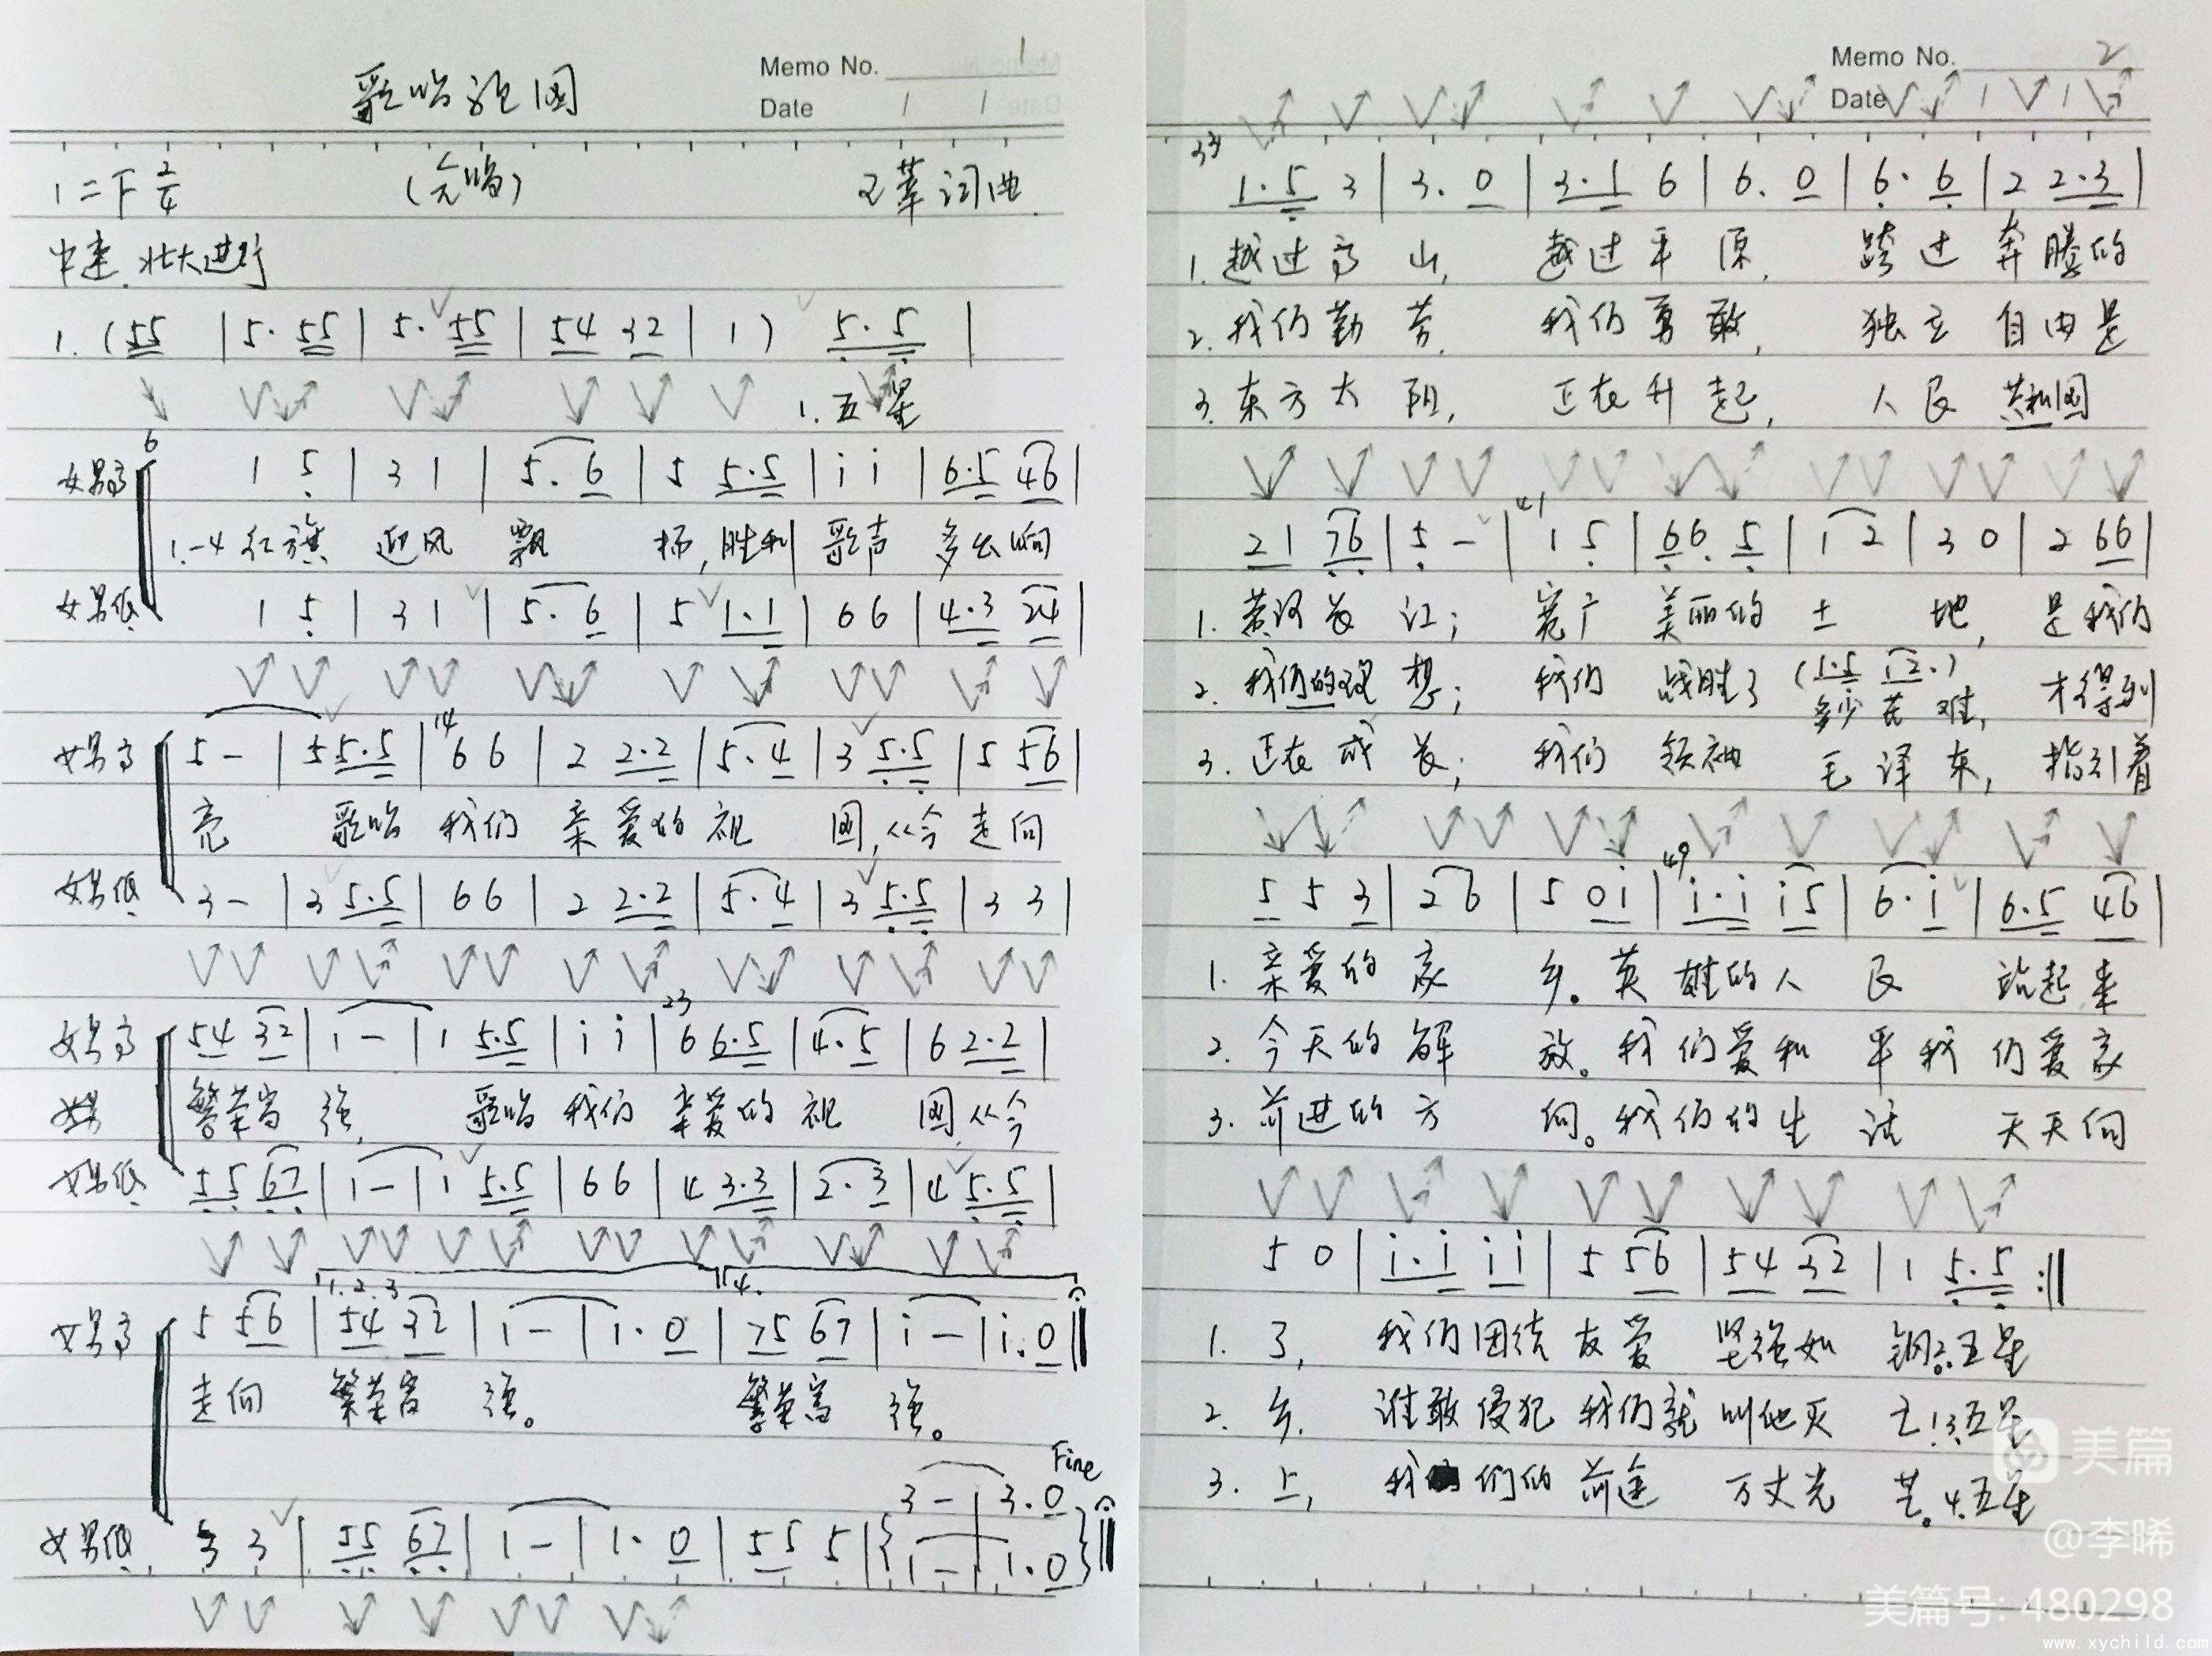 Memo No. 1
Date / /
歌唱祖国
1=F 2/4 (合唱) 王莘 词曲
中速 壮大进行
1. (55 | 5· 55 | 5· 55 | 54 32 | 1) 5·5 |
1. 五星
6
女男高 1 5 | 3 1 | 5· 6 | 5 5·5 | i i | 6·5 46 |
1.-4 红旗 迎风 飘 扬,胜利 歌声 多么响
女男低 1 5 | 3 1 | 5· 6 | 5 1·1 | 6 6 | 4·3 24 |
14
女男高 5 - | 5 5·5 | 6 6 | 2 2·2 | 5·4 | 3 5·5 | 5 56 |
亮 歌唱 我们 亲爱的 祖 国,从今 走向
女男低 3 - | 3 5·5 | 6 6 | 2 2·2 | 5·4 | 3 5·5 | 3 3 |
23
女男高 54 32 | 1 - | 1 5·5 | i i | 6 6·5 | 4·5 | 6 2·2 |
繁荣富 强, 歌唱 我们 亲爱的 祖 国,从今
女男低 55 67 | 1 - | 1 5·5 | 6 6 | 4 3·3 | 2·3 | 4 5·5 |
1.2.3 4.
女男高 5 56 | 54 32 | 1 - | 1·0 | 75 67 | i - | i·0 ‖
走向 繁荣富 强。 繁荣富 强。
Fine
3 - | 3·0
女男低 3 3 | 55 67 | 1 - | 1·0 | 55 5 | 1 - | 1·0 ‖
Memo No. 2
Date / /
33
1·5 3 | 3·0 | 3·1 6 | 6·0 | 6·6 | 2 2·3 |
1. 越过高 山, 越过平 原, 跨过 奔腾的
2. 我们勤 劳, 我们勇 敢, 独立 自由是
3. 东方太 阳, 正在升 起, 人民 共和国
41
21 76 | 5 - | 1 5 | 66·5 | 1 2 | 3 0 | 2 66 |
1. 黄河长 江; 宽广 美丽的 土 地, 是我们
2. 我们的理 想; 我们 战胜了 (1·5 12·) 多少苦 难, 才得到
3. 正在成 长; 我们 领袖 毛 泽 东, 指引着
49
5 5 3 | 2 6 | 5 0i | i·i i5 | 6·i | 6·5 46 |
1. 亲爱的 家 乡。英 雄的人 民 站起来
2. 今天的 解 放。我 们爱和 平我 们爱家
3. 前进的 方 向。我 们的生 活 天天向
5 0 | i·i ii | 5 56 | 54 32 | 1 5·5 :‖
1. 了, 我们团结 友爱 坚强如 钢。2.五星
2. 乡. 谁敢侵犯 我们就 叫他灭 亡!3.五星
3. 上, 我们的 前途 万丈光 芒。4.五星
美篇
@李晞
美篇号: 480298
www.xychild.com